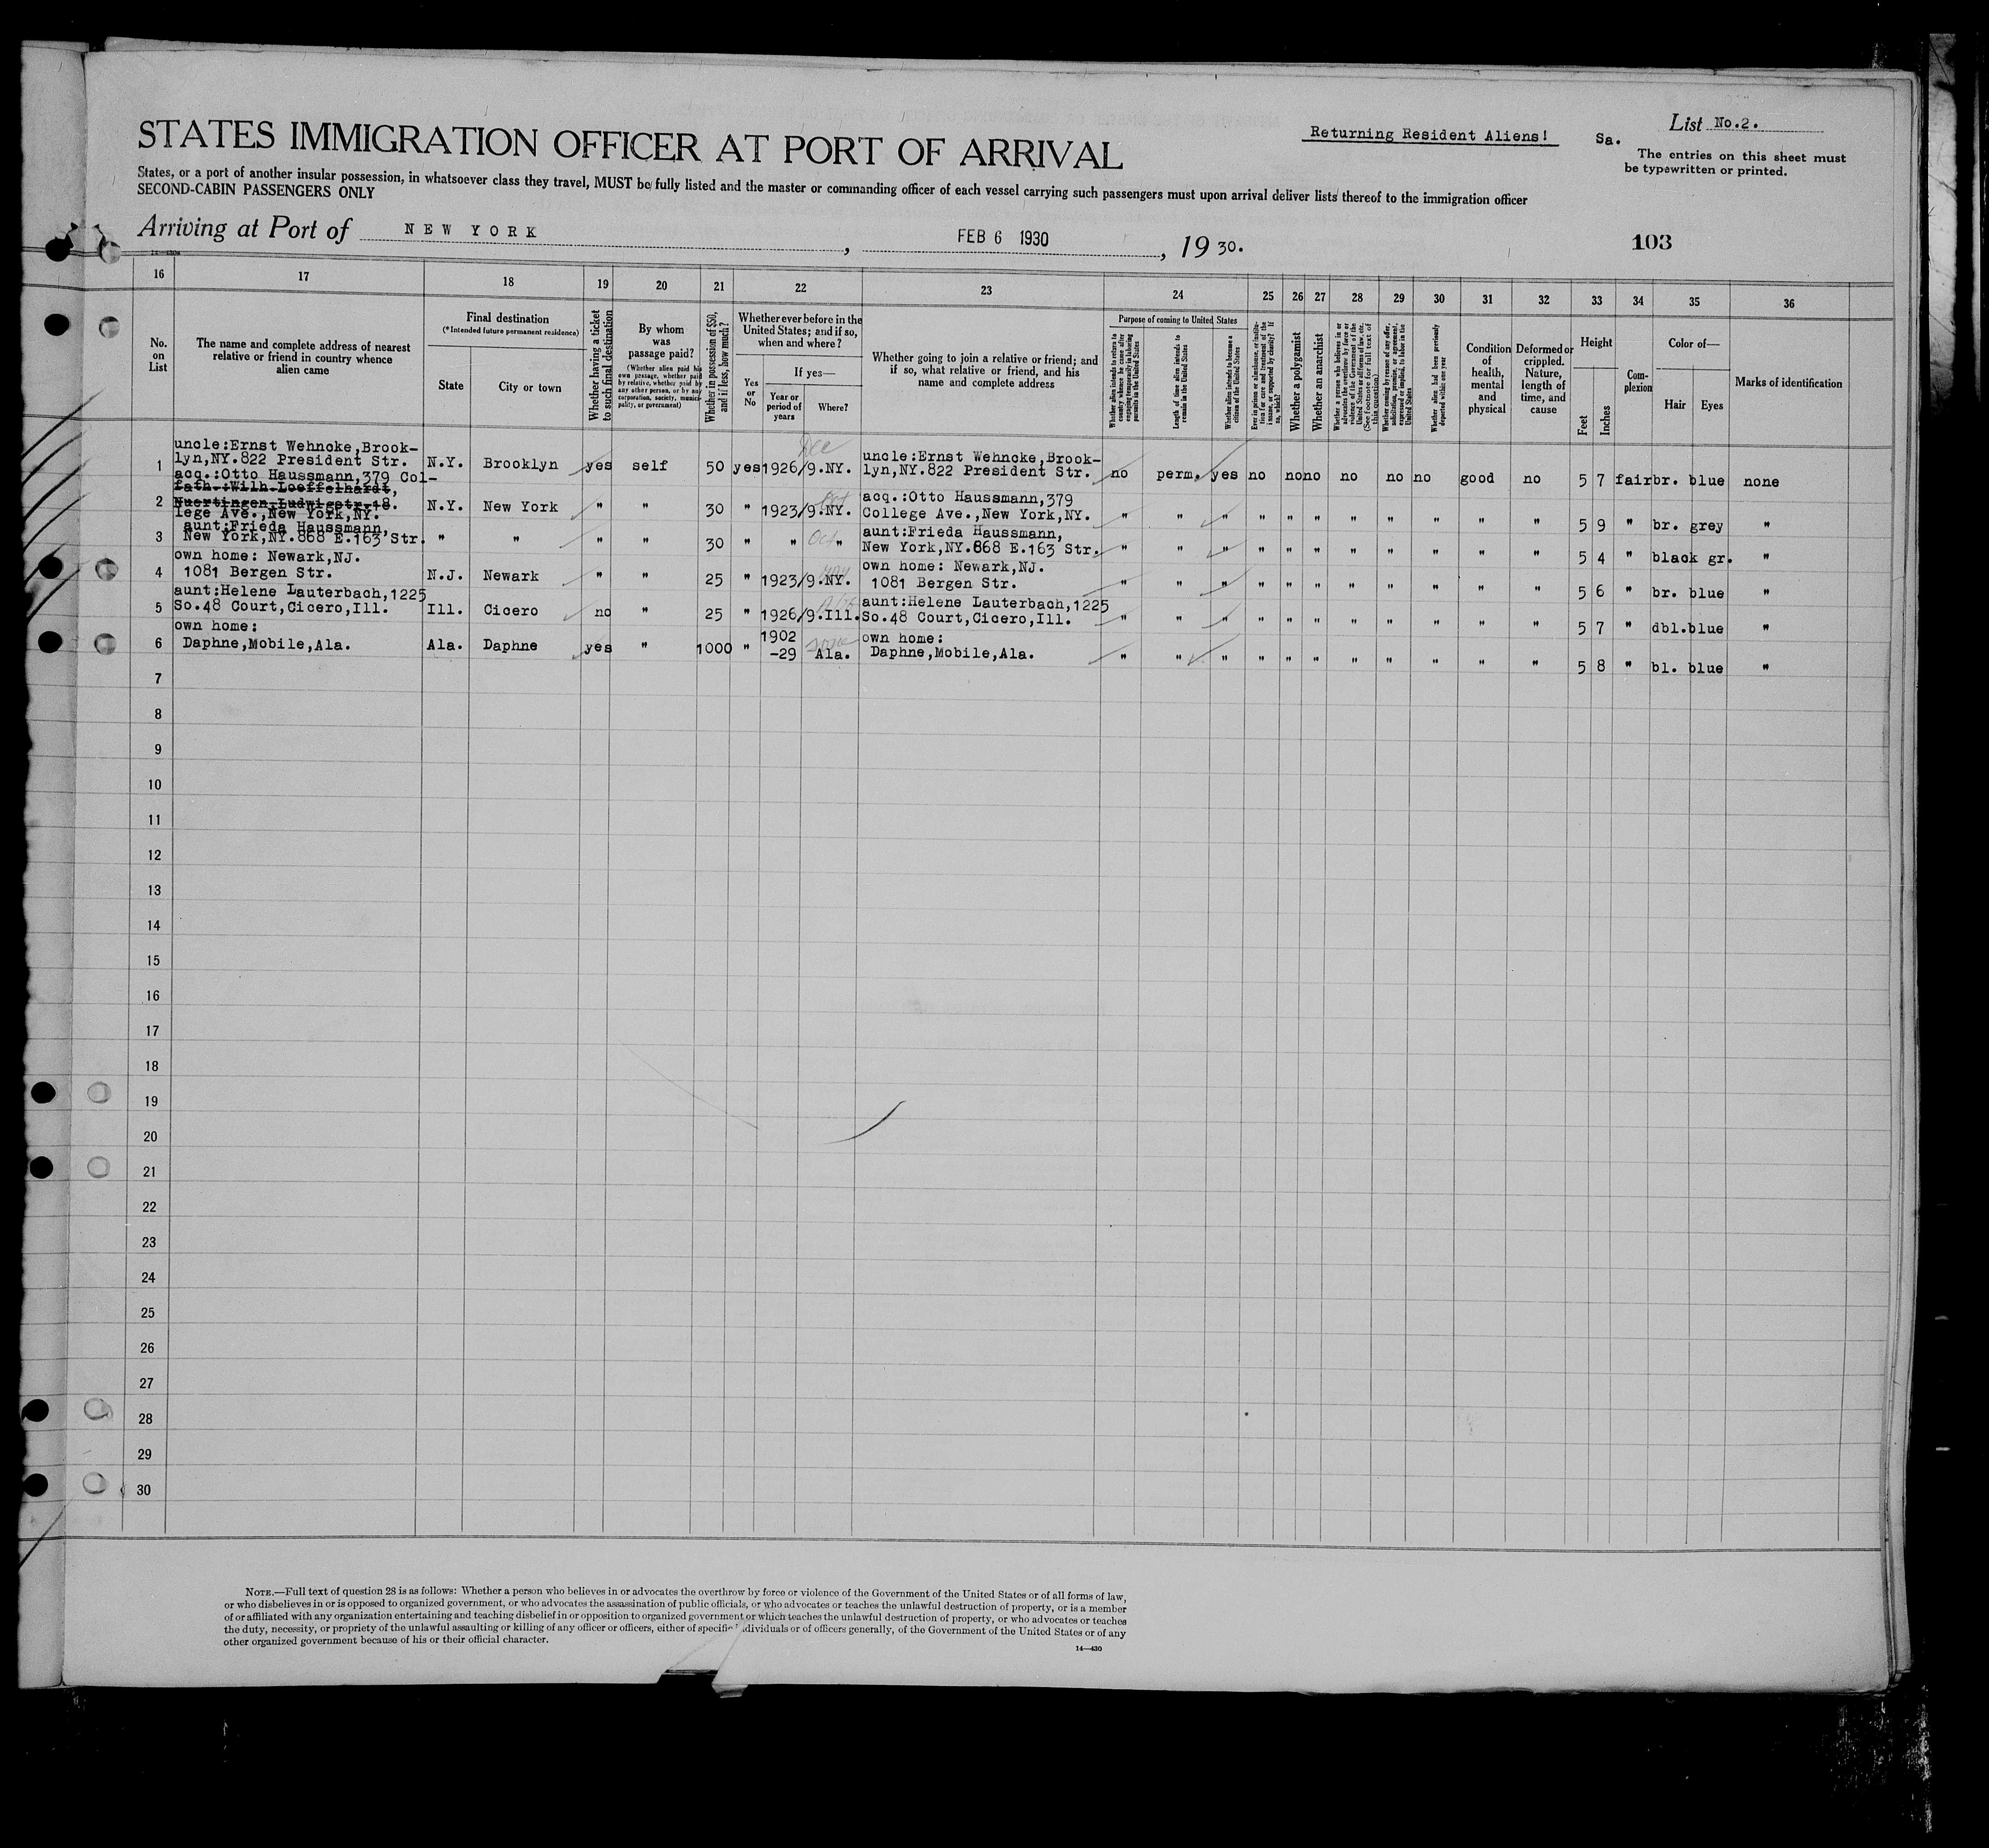 List No.2.
Returning Resident Aliens!
Sa.
The entries on this sheet must
be typewritten or printed.
STATES IMMIGRATION OFFICER AT PORT OF ARRIVAL
States, or a port of another insular possession, in whatsoever class they travel, MUST be fully listed and the master or commanding officer of each vessel carrying such passengers must upon arrival deliver lists thereof to the immigration officer
SECOND-CABIN PASSENGERS ONLY
Arriving at Port of NEW YORK, FEB 6 1930, 1930.
103
16 17 18 19 20 21 22 23 24 25 26 27 28 29 30 31 32 33 34 35 36
No.
on
List
The name and complete address of nearest
relative or friend in country whence
alien came
Final destination
(*Intended future permanent residence)
State
City or town
Whether having a ticket
to such final destination
By whom
was
passage paid?
(Whether alien paid his
own passage, whether paid
by relative, whether paid by
any other person, or by any
corporation, society, munici-
pality, or government)
Whether in possession of $50,
and if less, how much?
Whether ever before in the
United States; and if so,
when and where?
Yes
or
No
If yes—
Year or
period of
years
Where?
Whether going to join a relative or friend; and
if so, what relative or friend, and his
name and complete address
Purpose of coming to United States
Whether alien intends to return to
country whence he came after
engaging temporarily in laboring
pursuits in the United States
Length of time alien intends to
remain in the United States
Whether alien intends to become a
citizen of the United States
Ever in prison or almshouse, or institu-
tion for care and treatment of the
insane, or supported by charity? If
so, which?
Whether a polygamist
Whether an anarchist
Whether a person who believes in or
advocates the overthrow by force or
violence of the Government of the
United States or all forms of law, etc.
(See footnote for full text of
this question)
Whether coming by reason of any offer,
solicitation, promise, or agreement,
expressed or implied, to labor in the
United States
Whether alien had been previously
deported within one year
Condition
of
health,
mental
and
physical
Deformed or
crippled.
Nature,
length of
time, and
cause
Height
Feet
Inches
Com-
plexion
Color of—
Hair
Eyes
Marks of identification
uncle:Ernst Wehncke,Brook-
1 lyn,NY.822 President Str. N.Y. Brooklyn yes self 50 yes 1926/9.NY. Dec uncle:Ernst Wehncke,Brook-
lyn,NY.822 President Str. no perm. yes no no no no no no good no 5 7 fair br. blue none
acq.:Otto Haussmann,379 Col-
fath.:Wilh.Loeffelhardt,
2 Nuertingen,Ludwigstr.18. N.Y. New York " " 30 " 1923/9.NY. Oct acq.:Otto Haussmann,379
lege Ave.,New York,NY. College Ave.,New York,NY. " " " " " " " " " " " 5 9 " br. grey "
aunt:Frieda Haussmann,
3 New York,NY.868 E.163 Str. " " " " 30 " " " Oct aunt:Frieda Haussmann,
New York,NY.868 E.163 Str. " " " " " " " " " " " 5 4 " black gr. "
own home: Newark,NJ.
4 1081 Bergen Str. N.J. Newark " " 25 " 1923/9.NY. own home: Newark,NJ.
1081 Bergen Str. " " " " " " " " " " " 5 6 " br. blue "
aunt:Helene Lauterbach,1225
5 So.48 Court,Cicero,Ill. Ill. Cicero no " 25 " 1926/9.Ill. aunt:Helene Lauterbach,1225
So.48 Court,Cicero,Ill. " " " " " " " " " " " 5 7 " dbl. blue "
own home:
6 Daphne,Mobile,Ala. Ala. Daphne yes " 1000 " 1902
-29 Ala. own home:
Daphne,Mobile,Ala. " " " " " " " " " " " 5 8 " bl. blue "
7
8
9
10
11
12
13
14
15
16
17
18
19
20
21
22
23
24
25
26
27
28
29
30
NOTE.—Full text of question 28 is as follows: Whether a person who believes in or advocates the overthrow by force or violence of the Government of the United States or of all forms of law,
or who disbelieves in or is opposed to organized government, or who advocates the assassination of public officials, or who advocates or teaches the unlawful destruction of property, or is a member
of or affiliated with any organization entertaining and teaching disbelief in or opposition to organized government or which teaches the unlawful destruction of property, or who advocates or teaches
the duty, necessity, or propriety of the unlawful assaulting or killing of any officer or officers, either of specific individuals or of officers generally, of the Government of the United States or of any
other organized government because of his or their official character.
14—430